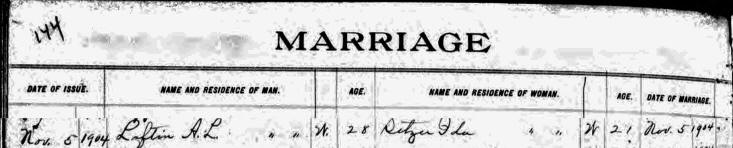 144
MARRIAGE
DATE OF ISSUE. NAME AND RESIDENCE OF MAN. AGE. NAME AND RESIDENCE OF WOMAN. AGE. DATE OF MARRIAGE.
Nov. 5 1904 Loftin A.L. " " W. 28 Ritzer Ida " " W 21 Nov. 5 1904.